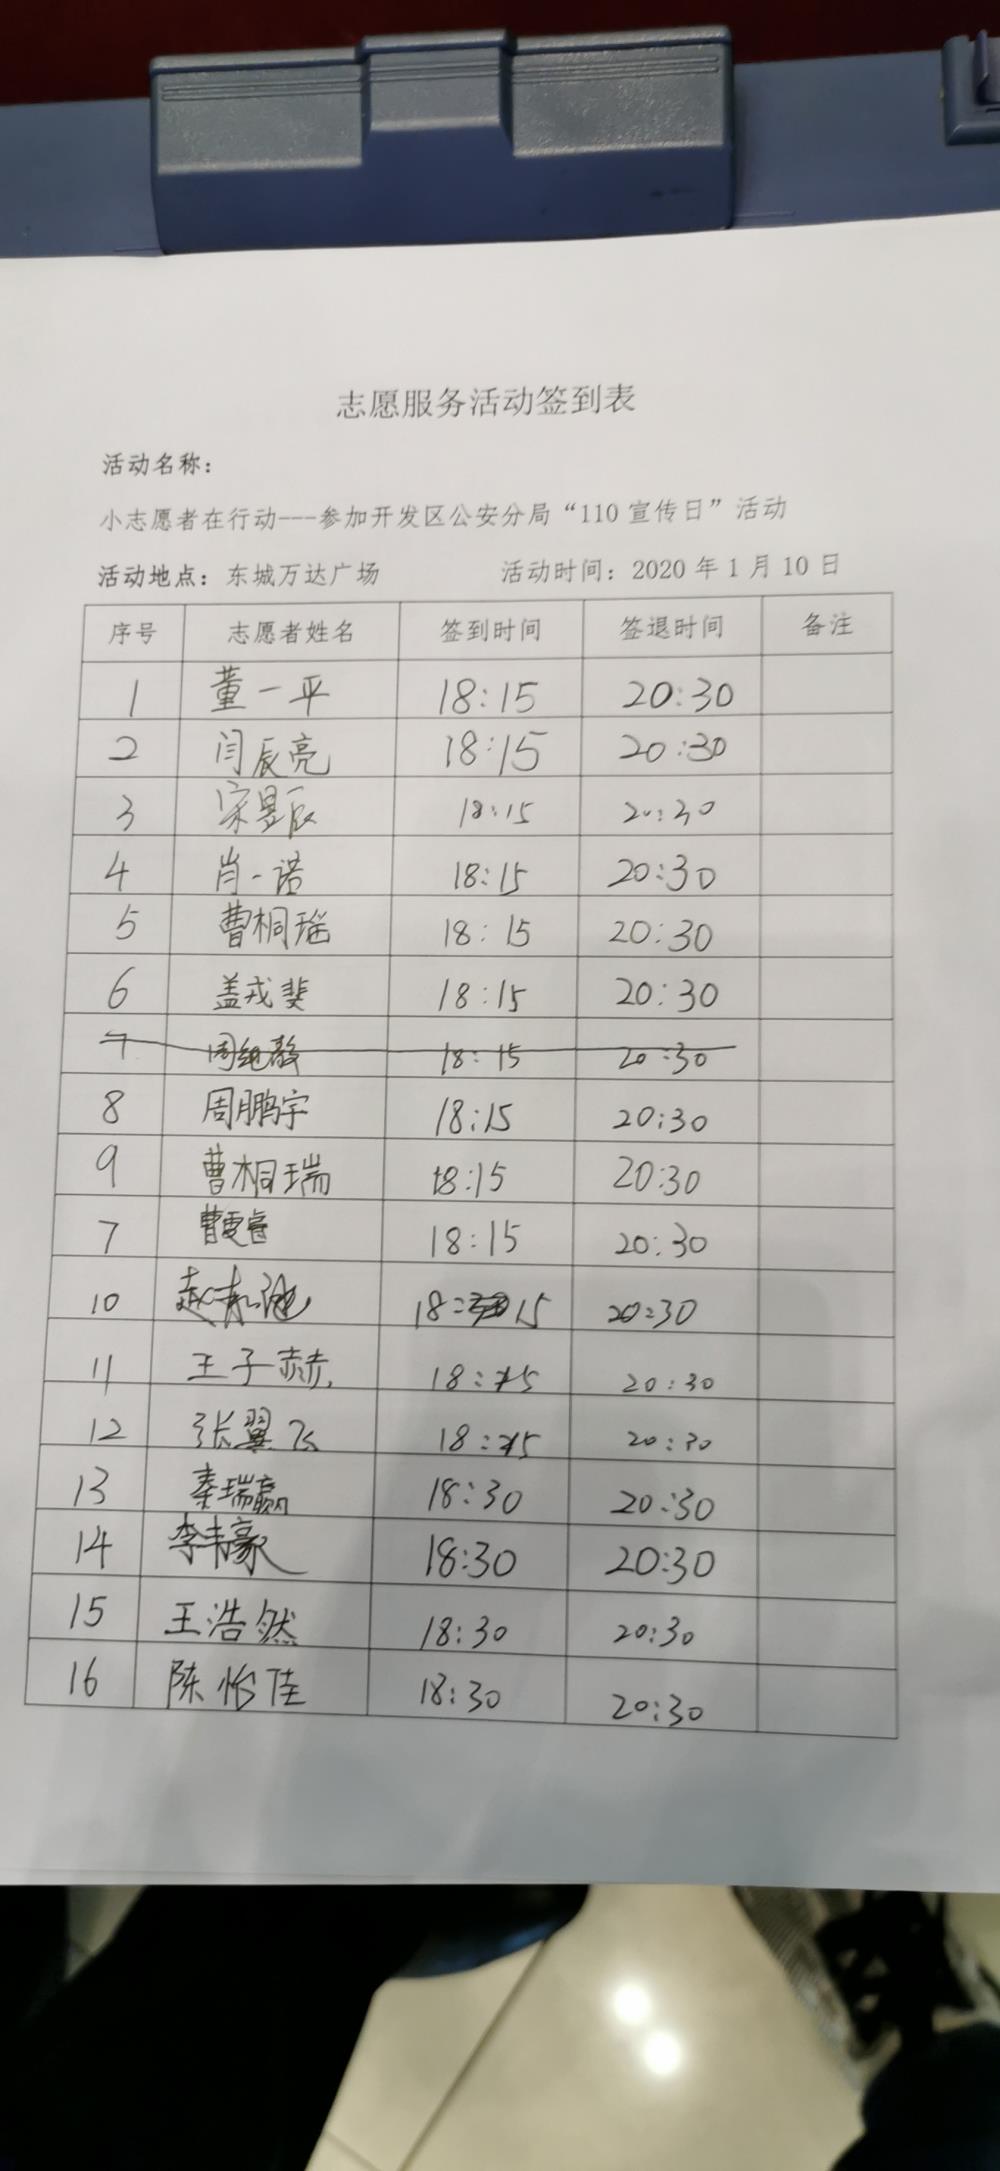 志愿服务活动签到表
活动名称：
小志愿者在行动---参加开发区公安分局“110宣传日”活动
活动地点：东城万达广场 活动时间：2020年1月10日
序号 志愿者姓名 签到时间 签退时间 备注
1 董一平 18:15 20:30
2 闫辰亮 18:15 20:30
3 宋昱辰 18:15 20:30
4 肖一诺 18:15 20:30
5 曹桐瑶 18:15 20:30
6 盖戎斐 18:15 20:30
7 18:15 20:30
8 周鹏宇 18:15 20:30
9 曹桐瑞 18:15 20:30
7 曹雯睿 18:15 20:30
10 18:15 20:30
11 王子赫 18:15 20:30
12 张翼飞 18:15 20:30
13 秦瑞赢 18:30 20:30
14 李韦豪 18:30 20:30
15 王浩然 18:30 20:30
16 陈怡佳 18:30 20:30